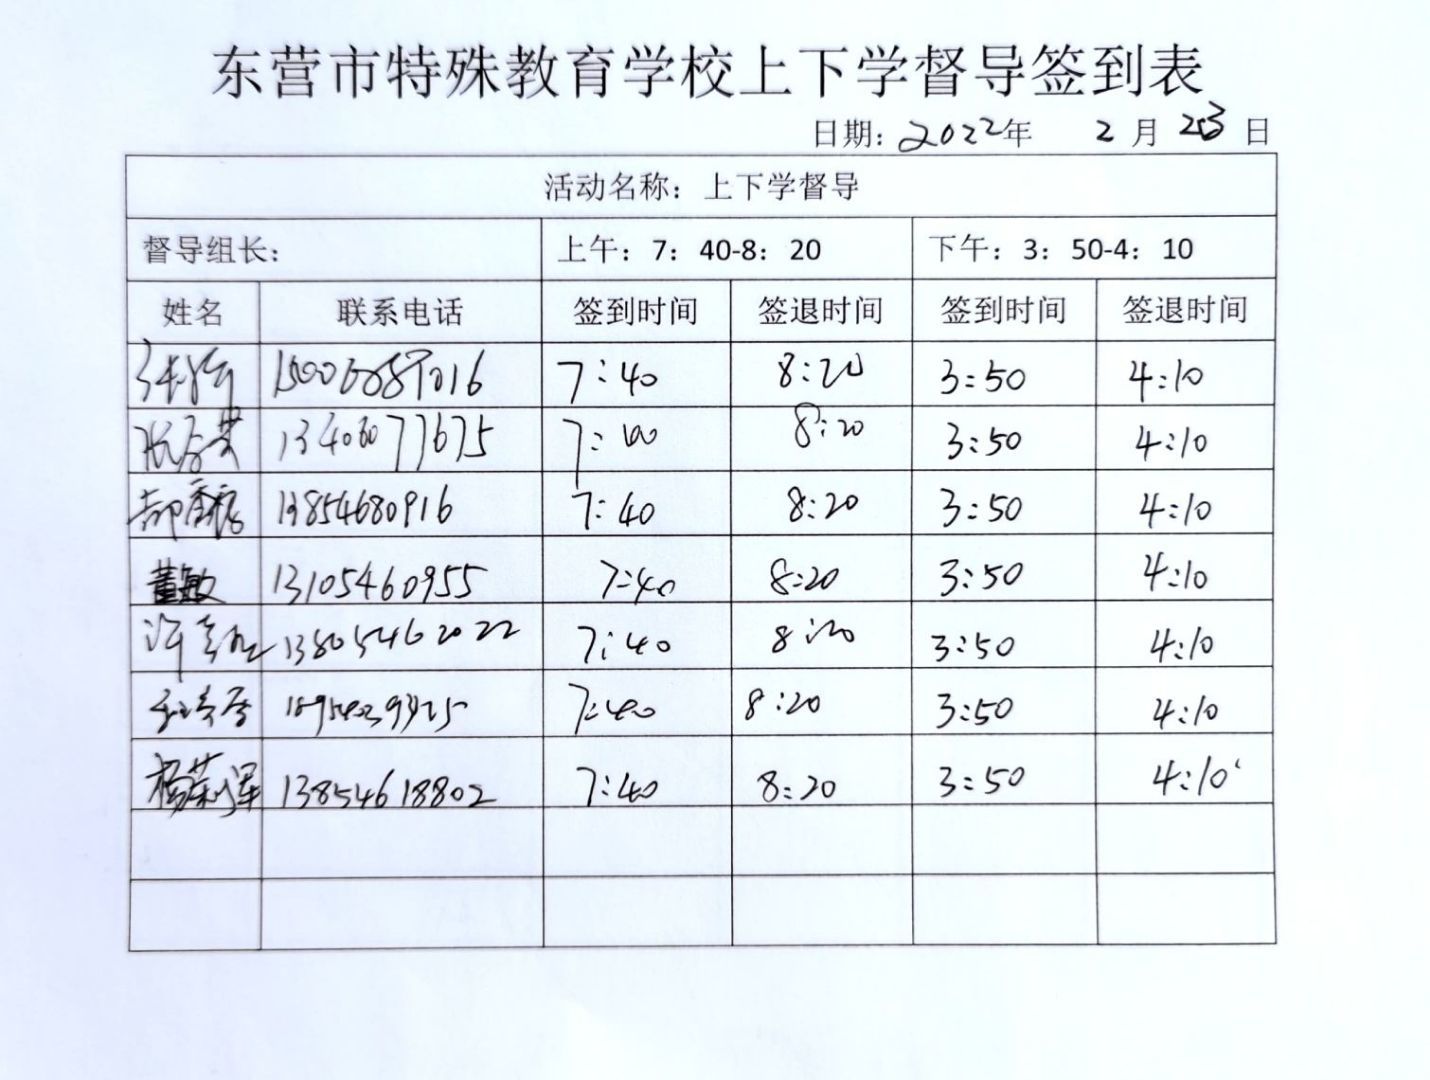 东营市特殊教育学校上下学督导签到表
日期: 2022年 2月 23 日
活动名称: 上下学督导
督导组长: 上午: 7: 40-8: 20 下午: 3: 50-4: 10
姓名 联系电话 签到时间 签退时间 签到时间 签退时间
7:40 8:20 3:50 4:10
13406077675 8:20 3:50 4:10
13854680916 7:40 8:20 3:50 4:10
董敏 13105460955 7:40 8:20 3:50 4:10
13805462022 7:40 8:20 3:50 4:10
7:40 8:20 3:50 4:10
杨荣军 13854618802 7:40 8:20 3:50 4:10